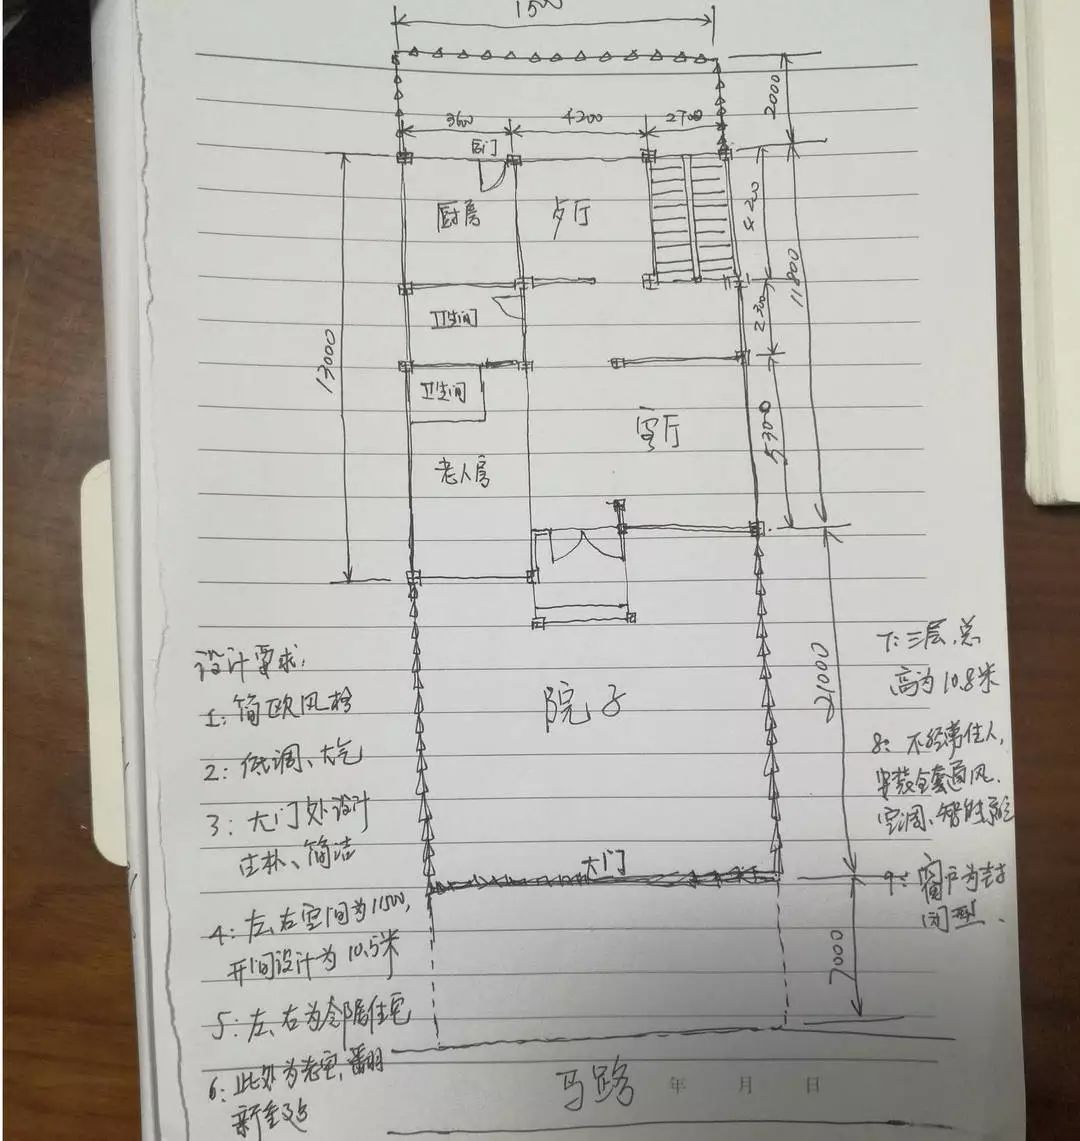 3600
4200
2700
2000
后门
厨房
歺厅
4200
11800
卫生间
2300
13000
卫生间
客厅
5300
老人房
院子
21000
大门
7000
设计要求:
1: 简欧风格
2: 低调、大气
3: 大门处设计
古朴、简洁
4: 左、右空间为11500,
开间设计为10.5米
5: 左、右为邻居住宅
6: 此处为老宅,翻
新重建
7: 三层,总
高为10.8米
8: 不经常住人,
安装全套通风、
空调、智能系统
9: 窗户为封
闭型.
马路
年 月 日